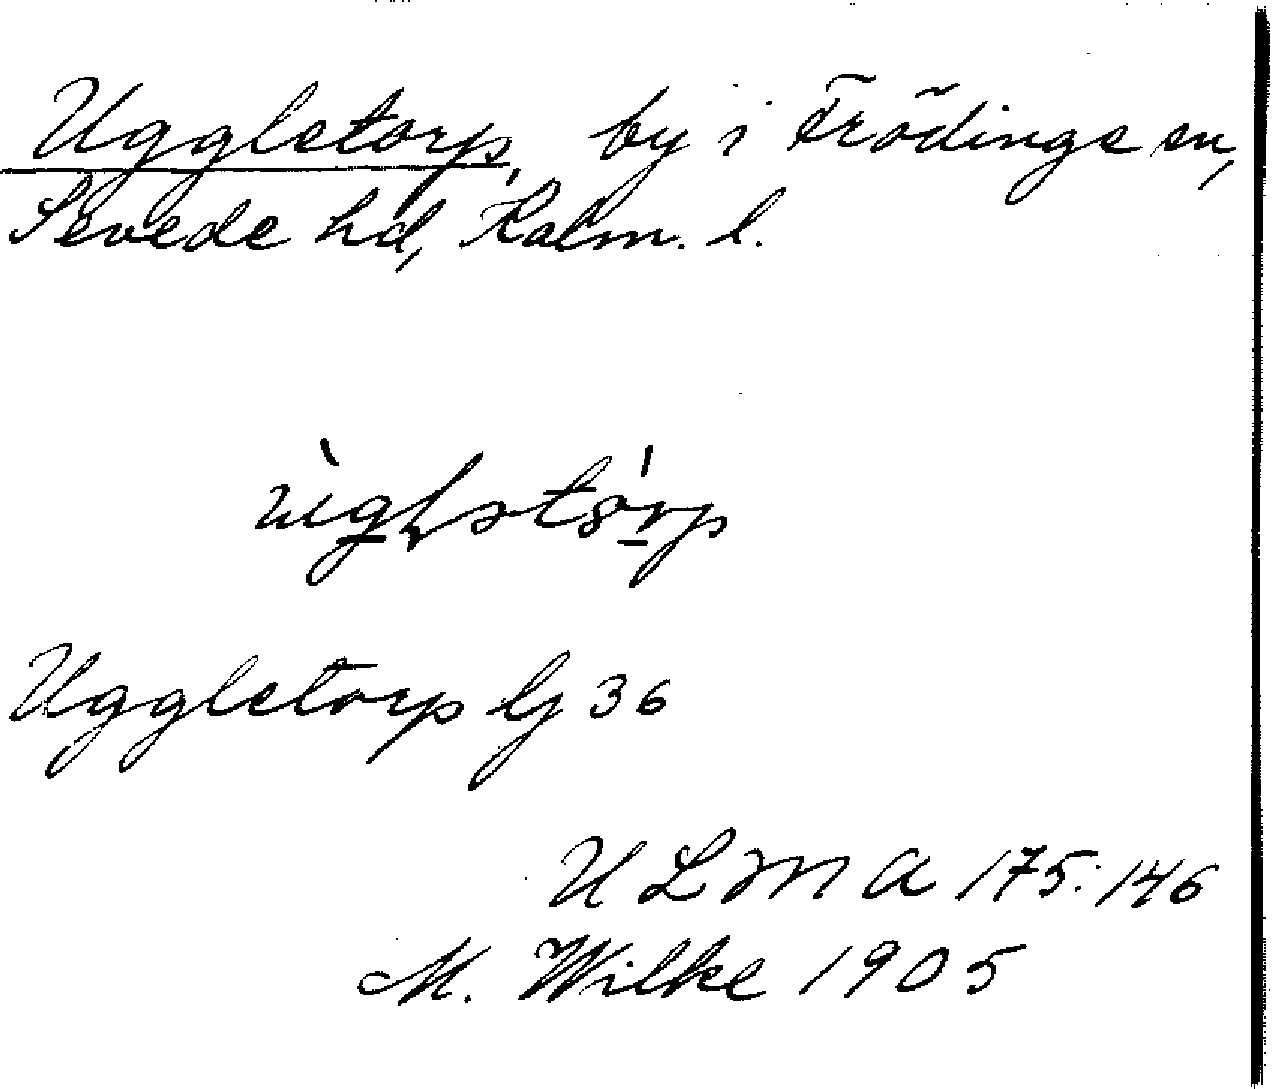 Uggletorp, by i Frödinge sn,
Sevede hd, Kalm. l.
Uggletorp lj 36
ULMA 175:146
M. Wilke 1905